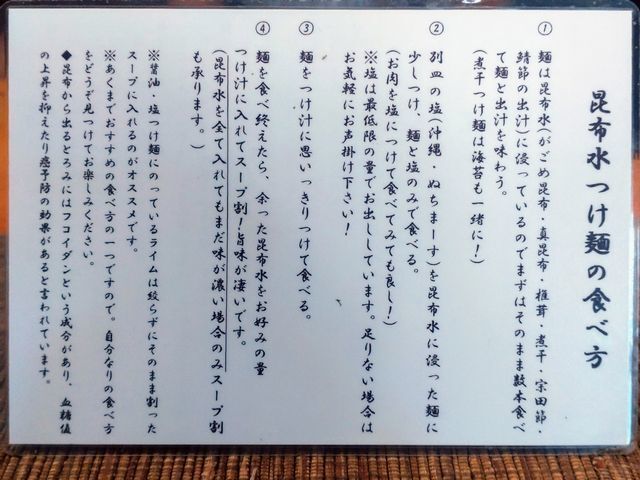 昆布水つけ麺の食べ方
① 麺は昆布水(がごめ昆布・真昆布・椎茸・煮干・宗田節・
鯖節の出汁)に浸っているのでまずはそのまま数本食べ
て麺と出汁を味わう。
(煮干つけ麺は海苔も一緒に!)
② 別皿の塩(沖縄・ぬちまーす)を昆布水に浸った麺に
少しつけ、麺と塩のみで食べる。
(お肉を塩につけて食べてみても良し!)
※塩は最低限の量でお出ししています。足りない場合は
お気軽にお声掛け下さい!
③ 麺をつけ汁に思いっきりつけて食べる。
④ 麺を食べ終えたら、余った昆布水をお好みの量
つけ汁に入れてスープ割!旨味が凄いです。
(昆布水を全て入れてもまだ味が濃い場合のみスープ割
も承ります。)
※醤油、塩つけ麺にのっているライムは絞らずにそのまま割った
スープに入れるのがオススメです。
※あくまでおすすめの食べ方の一つですので。自分なりの食べ方
をどうぞ見つけてお楽しみください。
◆昆布から出るとろみにはフコイダンという成分があり、血糖値
の上昇を抑えたり癌予防の効果があると言われています。